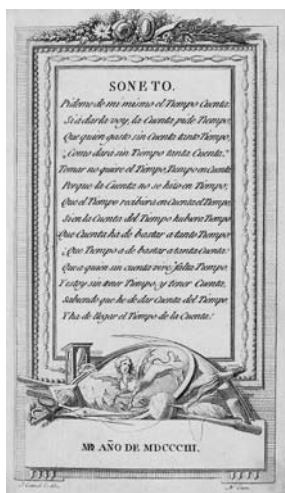 SONETO.
Pídome de mi mismo el Tiempo Cuenta:
Si a darla voy, la Cuenta pide Tiempo,
Que quien gasto sin Cuenta tanto Tiempo,
¿Como dará sin Tiempo tanta Cuenta?
Tomar no quiere el Tiempo, Tiempo en Cuenta
Porque la Cuenta no se hizo en Tiempo;
Que el Tiempo recibiera en Cuenta el Tiempo,
Si en la Cuenta del Tiempo hubiera Tiempo
Que Cuenta ha de bastar a tanto Tiempo
¿Que Tiempo a de bastar a tanta Cuenta?
Que a quien sin cuenta vive, falta Tiempo,
Y estoy sin tener Tiempo, y tener Cuenta,
Sabiendo que he de dar Cuenta del Tiempo
Y ha de llegar el Tiempo de la Cuenta!
AÑO DE MDCCCIII.